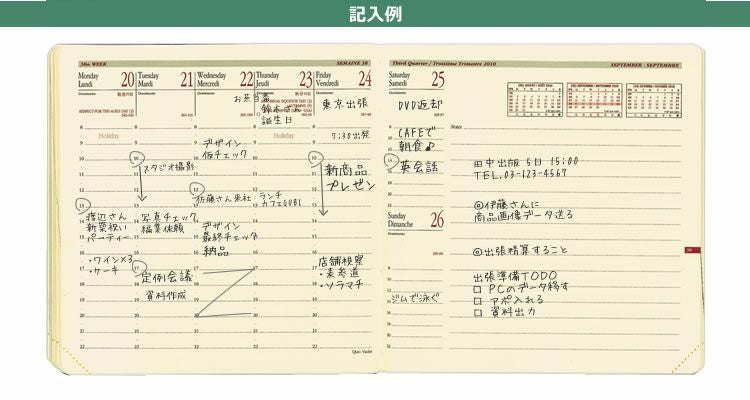 記入例
38th WEEK
SEMAINE 38
Third Quarter / Troisième Trimestre 2010
SEPTEMBER - SEPTEMBRE
Monday
Lundi
20
Dominante
RESPECT-FOR-THE-AGED DAY (J)
263-102
Holiday
13
渡辺さん
新築祝い
パーティー
・ワイン×3
・ケーキ
Tuesday
Mardi
21
Dominante
264-101
10
スタジオ撮影
写真チェック
編集依頼
17
定例会議
資料作成
Wednesday
Mercredi
22
Dominante
265-100
デザイン
仮チェック
12
佐藤さん来社
デザイン
最終チェック
納品
Thursday
Jeudi
23
Dominante
お弁当
誕生日
266-99
Holiday
ランチ
Friday
Vendredi
24
Dominante
東京出張
267-98
7:30出発
10
新商品
プレゼン
店舗視察
・表参道
・ソラマチ
Quo Vadis
Saturday
Samedi
25
Dominante
DVD返却
268-97
CAFEで
朝食♪
英会話
Sunday
Dimanche
26
Dominante
269-96
ジムで泳ぐ
Notes
田中出版 5日 15:00
TEL.03-123-4567
@伊藤さんに
商品画像データ送る
@出張精算すること
出張準備TODO
□ PCのデータ移す
□ アポ入れる
□ 資料出力